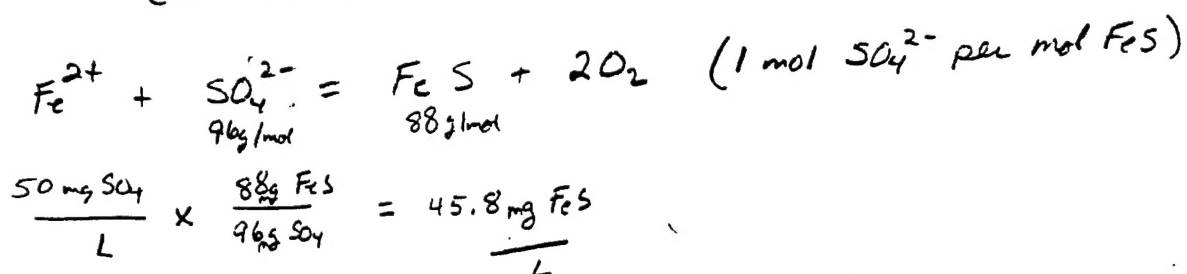 Fe²⁺ + SO₄²⁻ = FeS + 2O₂ (1 mol SO₄²⁻ per mol FeS)
96g/mol 88g/mol
50 mg SO₄ / L × 88 mg FeS / 96 mg SO₄ = 45.8 mg FeS / L